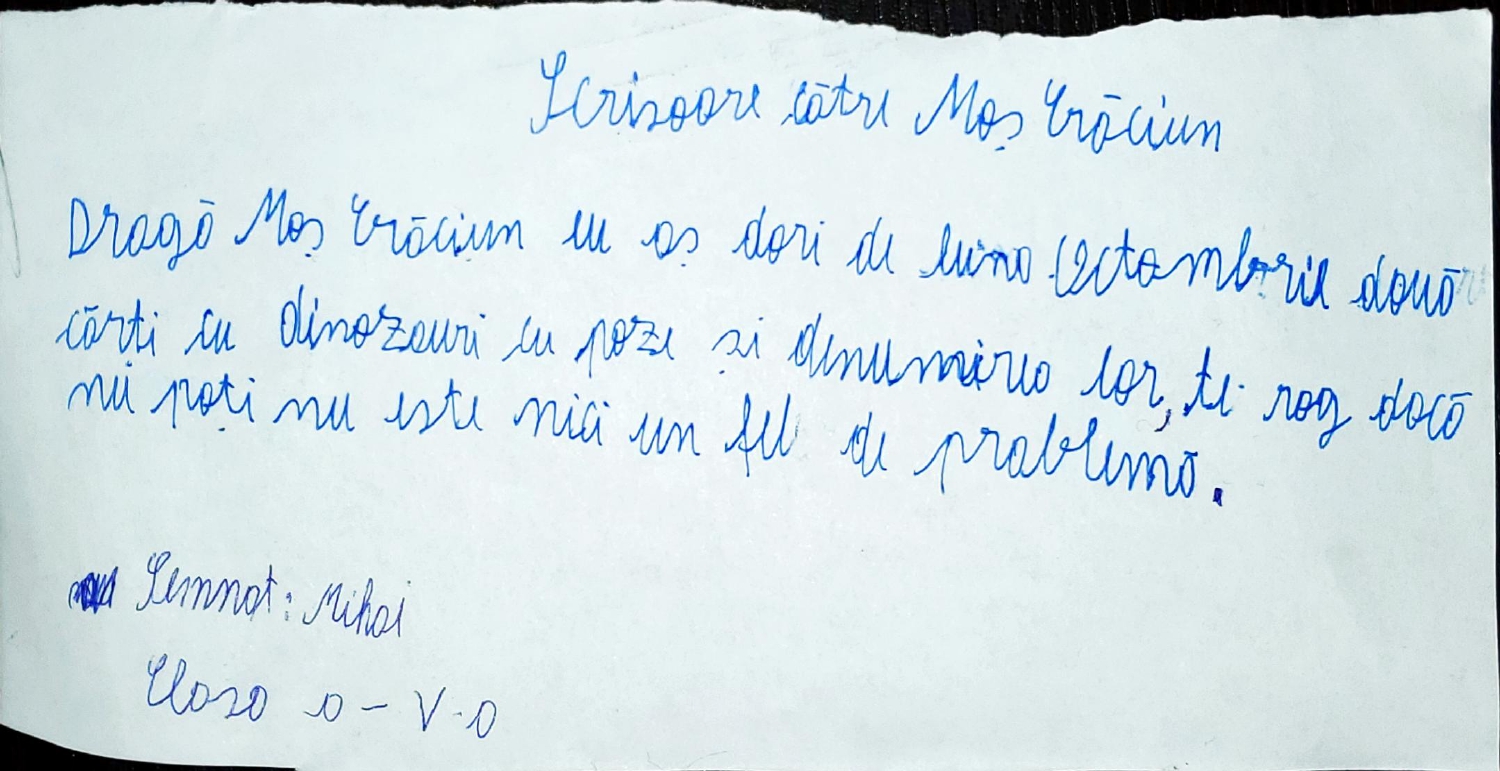 Scrisoare către Moș Crăciun
Dragă Moș Crăciun eu aș dori de luna Octombrie două
cărți cu dinozauri cu poze și denumirea lor, te rog dacă
nu poți nu este nici un fel de problemă.
Semnat: Mihai
Clasa a-V-a